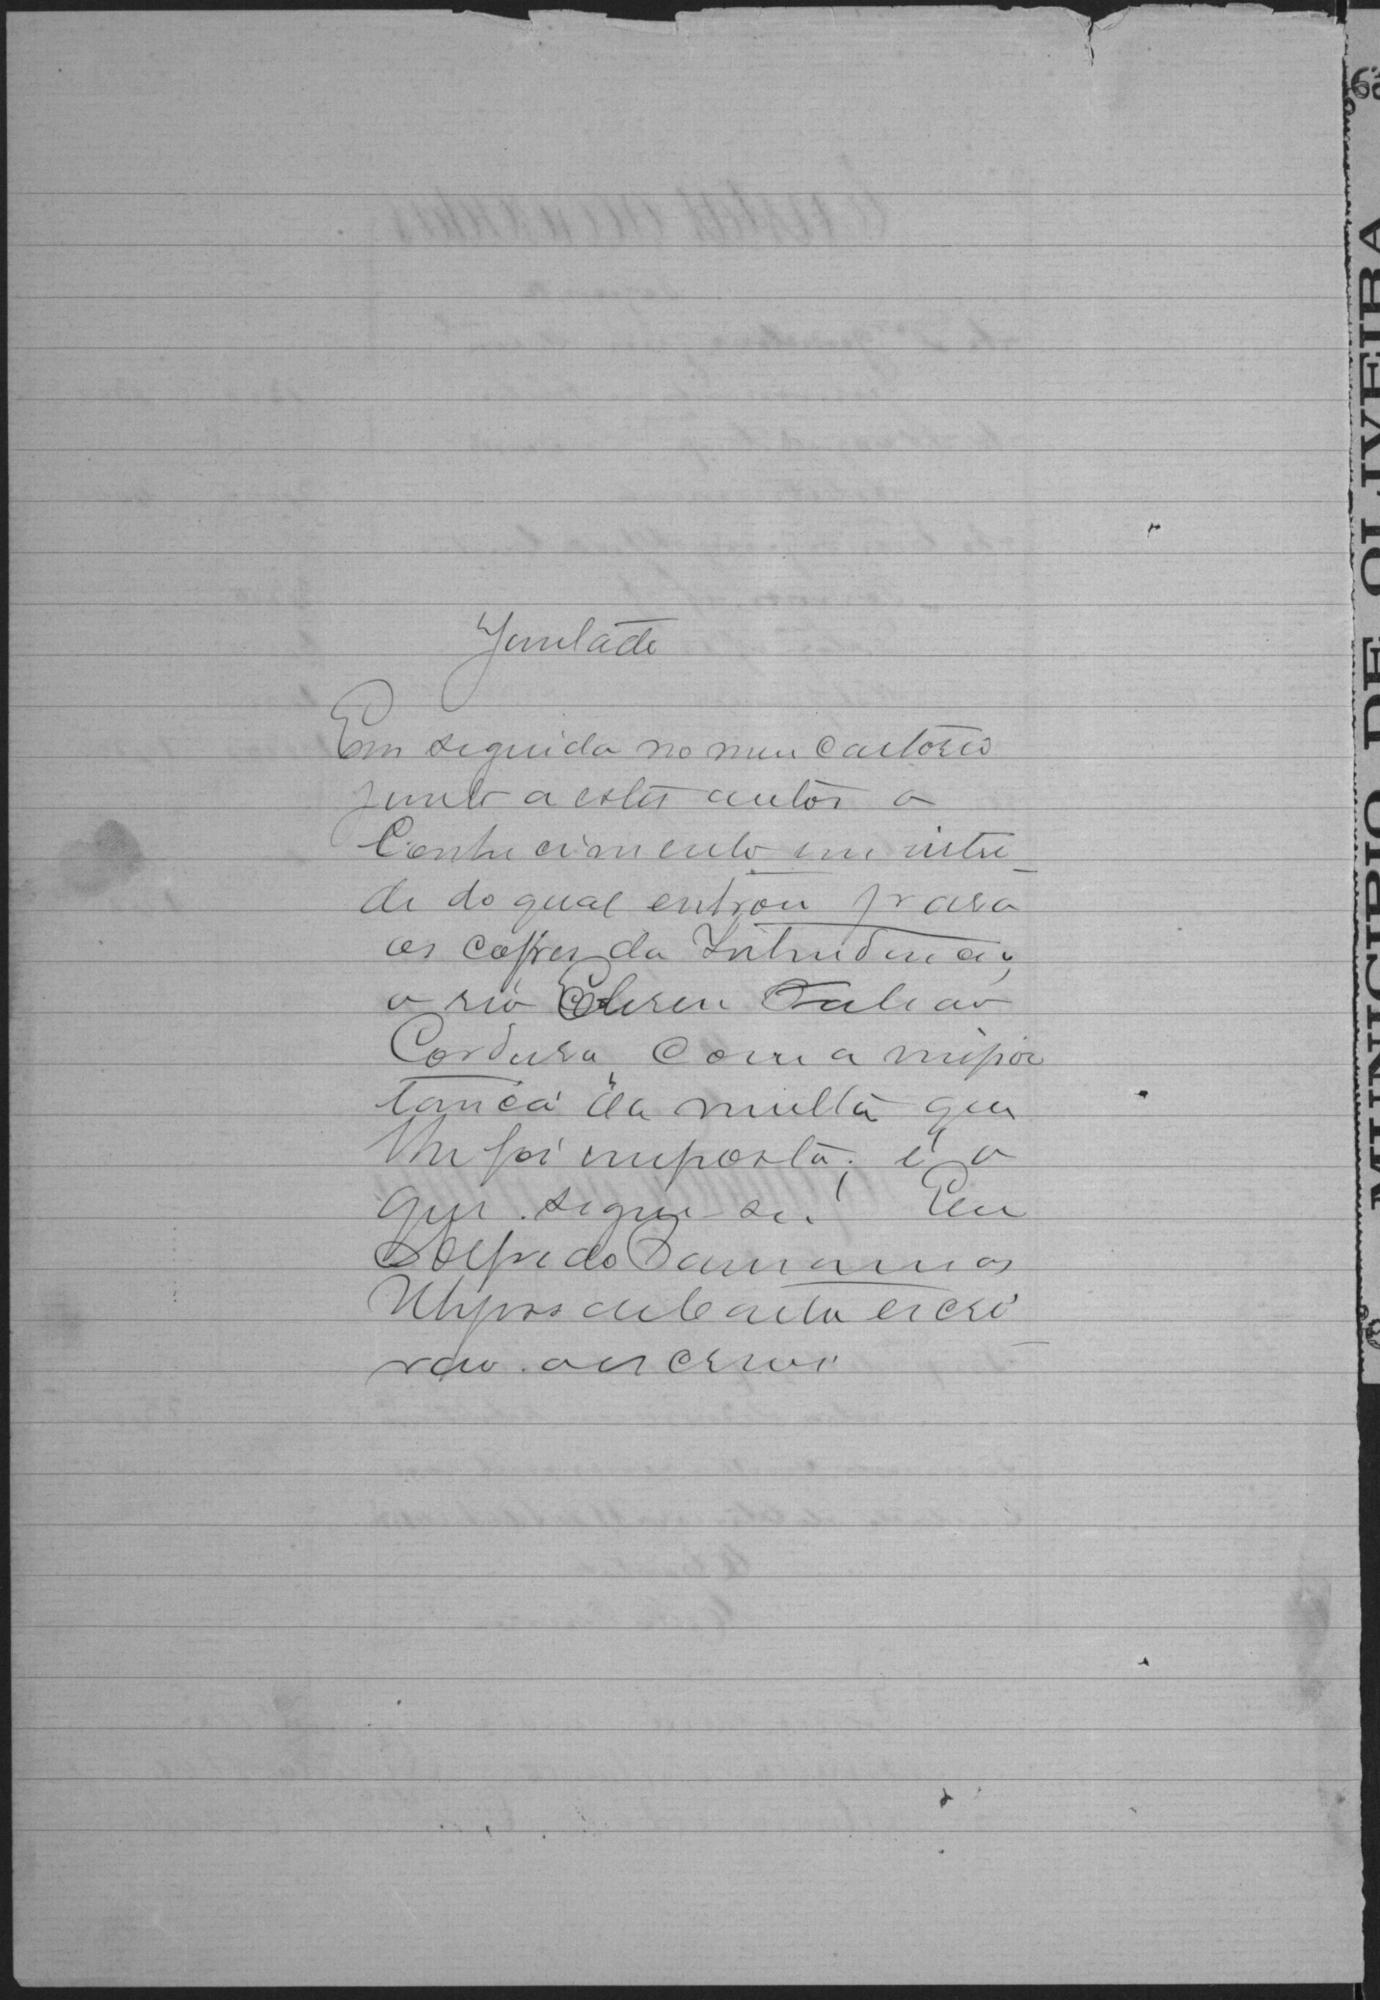 Juntada
Em seguida no meu cartorio
junto a estes autos o
Conhecimento em virtu-
de do qual entrou para
os cofres da Intendencia,
o réo Eliseu Galeao
Cordura, com a impor
tancia da multa que
lhe foi imposta; é o
que segue-se. Eu
Alfredo Paranamos
escri-
vão o escrevi
MUNICIPIO DE OLIVEIRA